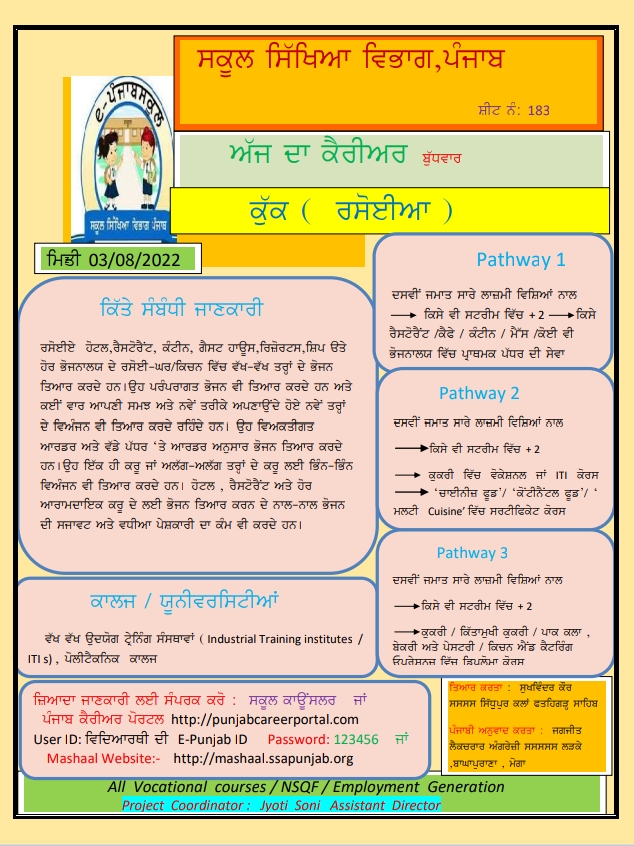 ਸਕੂਲ ਸਿੱਖਿਆ ਵਿਭਾਗ,ਪੰਜਾਬ
ਸ਼ੀਟ ਨੰ: 183
e-ਪੰਜਾਬਸਕੂਲ
ਸਕੂਲ ਸਿੱਖਿਆ ਵਿਭਾਗ ਪੰਜਾਬ
ਅੱਜ ਦਾ ਕੈਰੀਅਰ ਬੁੱਧਵਾਰ
ਕੁੱਕ ( ਰਸੋਈਆ )
ਮਿਤੀ 03/08/2022
ਕਿੱਤੇ ਸੰਬੰਧੀ ਜਾਣਕਾਰੀ
ਰਸੋਈਏ ਹੋਟਲ,ਰੈਸਟੋਰੈਂਟ, ਕੰਟੀਨ, ਗੈਸਟ ਹਾਊਸ,ਰਿਜ਼ੋਰਟਸ,ਸ਼ਿਪ ੳਤੇ
ਹੋਰ ਭੋਜਨਾਲਯ ਦੇ ਰਸੋਈ-ਘਰ/ਕਿਚਨ ਵਿੱਚ ਵੱਖ-ਵੱਖ ਤਰ੍ਹਾਂ ਦੇ ਭੋਜਨ
ਤਿਆਰ ਕਰਦੇ ਹਨ।ਉਹ ਪਰੰਪਰਾਗਤ ਭੋਜਨ ਵੀ ਤਿਆਰ ਕਰਦੇ ਹਨ ਅਤੇ
ਕਈਂ ਵਾਰ ਆਪਣੀ ਸਮਝ ਅਤੇ ਨਵੇਂ ਤਰੀਕੇ ਅਪਣਾਉਂਦੇ ਹੋਏ ਨਵੇਂ ਤਰ੍ਹਾਂ
ਦੇ ਵਿਅੰਜਨ ਵੀ ਤਿਆਰ ਕਰਦੇ ਰਹਿੰਦੇ ਹਨ। ਉਹ ਵਿਅਕਤੀਗਤ
ਆਰਡਰ ਅਤੇ ਵੱਡੇ ਪੱਧਰ 'ਤੇ ਆਰਡਰ ਅਨੁਸਾਰ ਭੋਜਨ ਤਿਆਰ ਕਰਦੇ
ਹਨ।ਉਹ ਇੱਕ ਹੀ ਕਰੂ ਜਾਂ ਅਲੱਗ-ਅਲੱਗ ਤਰ੍ਹਾਂ ਦੇ ਕਰੂ ਲਈ ਭਿੰਨ-ਭਿੰਨ
ਵਿਅੰਜਨ ਵੀ ਤਿਆਰ ਕਰਦੇ ਹਨ। ਹੋਟਲ , ਰੈਸਟੋਰੈਂਟ ਅਤੇ ਹੋਰ
ਆਰਾਮਦਾਇਕ ਕਰੂ ਦੇ ਲਈ ਭੋਜਨ ਤਿਆਰ ਕਰਨ ਦੇ ਨਾਲ-ਨਾਲ ਭੋਜਨ
ਦੀ ਸਜਾਵਟ ਅਤੇ ਵਧੀਆ ਪੇਸ਼ਕਾਰੀ ਦਾ ਕੰਮ ਵੀ ਕਰਦੇ ਹਨ।
Pathway 1
ਦਸਵੀਂ ਜਮਾਤ ਸਾਰੇ ਲਾਜ਼ਮੀ ਵਿਸ਼ਿਆਂ ਨਾਲ
→ ਕਿਸੇ ਵੀ ਸਟਰੀਮ ਵਿੱਚ +2 → ਕਿਸੇ
ਰੈਸਟੋਰੈਂਟ /ਕੈਫੇ / ਕੰਟੀਨ / ਮੈੱਸ /ਕੋਈ ਵੀ
ਭੋਜਨਾਲਯ ਵਿੱਚ ਪ੍ਰਾਥਮਕ ਪੱਧਰ ਦੀ ਸੇਵਾ
Pathway 2
ਦਸਵੀਂ ਜਮਾਤ ਸਾਰੇ ਲਾਜ਼ਮੀ ਵਿਸ਼ਿਆਂ ਨਾਲ
→ ਕਿਸੇ ਵੀ ਸਟਰੀਮ ਵਿੱਚ +2
→ ਕੁਕਰੀ ਵਿੱਚ ਵੋਕੇਸ਼ਨਲ ਜਾਂ ITI ਕੋਰਸ
→ 'ਚਾਈਨੀਜ਼ ਫੂਡ'/ 'ਕੌਂਟੀਨੈਂਟਲ ਫੂਡ'/ '
ਮਲਟੀ Cuisine' ਵਿੱਚ ਸਰਟੀਫਿਕੇਟ ਕੋਰਸ
Pathway 3
ਦਸਵੀਂ ਜਮਾਤ ਸਾਰੇ ਲਾਜ਼ਮੀ ਵਿਸ਼ਿਆਂ ਨਾਲ
→ ਕਿਸੇ ਵੀ ਸਟਰੀਮ ਵਿੱਚ +2
→ ਕੁਕਰੀ / ਕਿੱਤਾਮੁਖੀ ਕੁਕਰੀ / ਪਾਕ ਕਲਾ ,
ਬੇਕਰੀ ਅਤੇ ਪੇਸਟਰੀ / ਕਿਚਨ ਐਂਡ ਕੈਟਰਿੰਗ
ਓਪਰੇਸ਼ਨਜ਼ ਵਿੱਚ ਡਿਪਲੋਮਾ ਕੋਰਸ
ਕਾਲਜ / ਯੂਨੀਵਰਸਿਟੀਆਂ
ਵੱਖ ਵੱਖ ਉਦਯੋਗ ਟ੍ਰੇਨਿੰਗ ਸੰਸਥਾਵਾਂ ( Industrial Training institutes /
ITI s) , ਪੋਲੀਟੈਕਨਿਕ ਕਾਲਜ
ਜ਼ਿਆਦਾ ਜਾਣਕਾਰੀ ਲਈ ਸੰਪਰਕ ਕਰੋ : ਸਕੂਲ ਕਾਊਂਸਲਰ ਜਾਂ
ਪੰਜਾਬ ਕੈਰੀਅਰ ਪੋਰਟਲ http://punjabcareerportal.com
User ID: ਵਿਦਿਆਰਥੀ ਦੀ E-Punjab ID Password: 123456 ਜਾਂ
Mashaal Website:- http://mashaal.ssapunjab.org
ਤਿਆਰ ਕਰਤਾ : ਸੁਖਵਿੰਦਰ ਕੌਰ
ਸਸਸਸ ਸਿੱਧੂਪੁਰ ਕਲਾਂ ਫਤਹਿਗੜ੍ਹ ਸਾਹਿਬ
ਪੰਜਾਬੀ ਅਨੁਵਾਦ ਕਰਤਾ : ਜਗਜੀਤ
ਲੈਕਚਰਾਰ ਅੰਗਰੇਜ਼ੀ ਸਸਸਸਸ ਲੜਕੇ
,ਬਾਘਾਪੁਰਾਣਾ , ਮੋਗਾ
All Vocational courses / NSQF / Employment Generation
Project Coordinator : Jyoti Soni Assistant Director